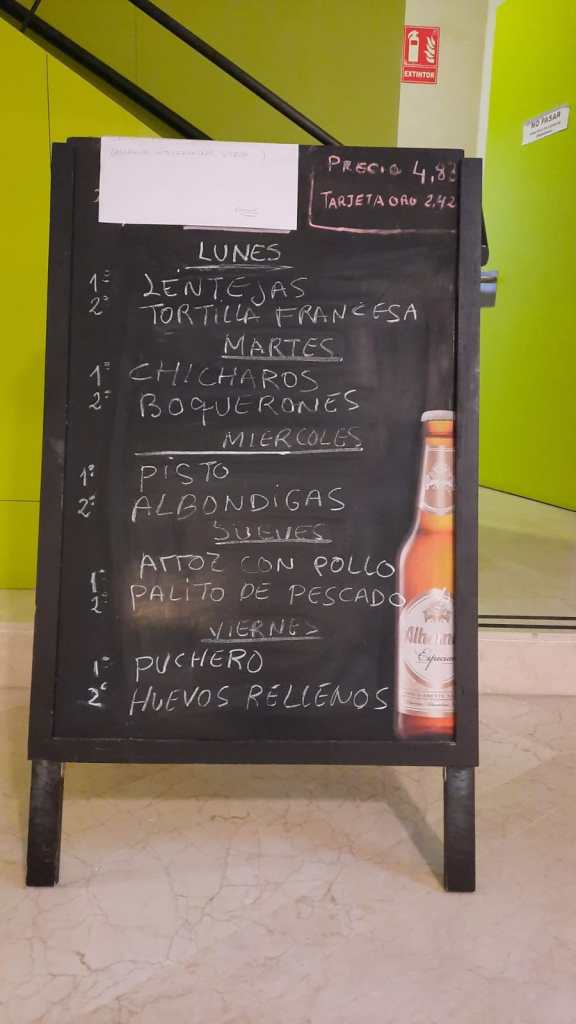 EXTINTOR
NO PASAR
PRECIO 4,83
TARJETA ORO 2,42
LUNES
1º LENTEJAS
2º TORTILLA FRANCESA
MARTES
1º CHICHAROS
2º BOQUERONES
MIERCOLES
1º PISTO
2º ALBONDIGAS
JUEVES
1º ARROZ CON POLLO
2º PALITO DE PESCADO
VIERNES
1º PUCHERO
2º HUEVOS RELLENOS
Especial